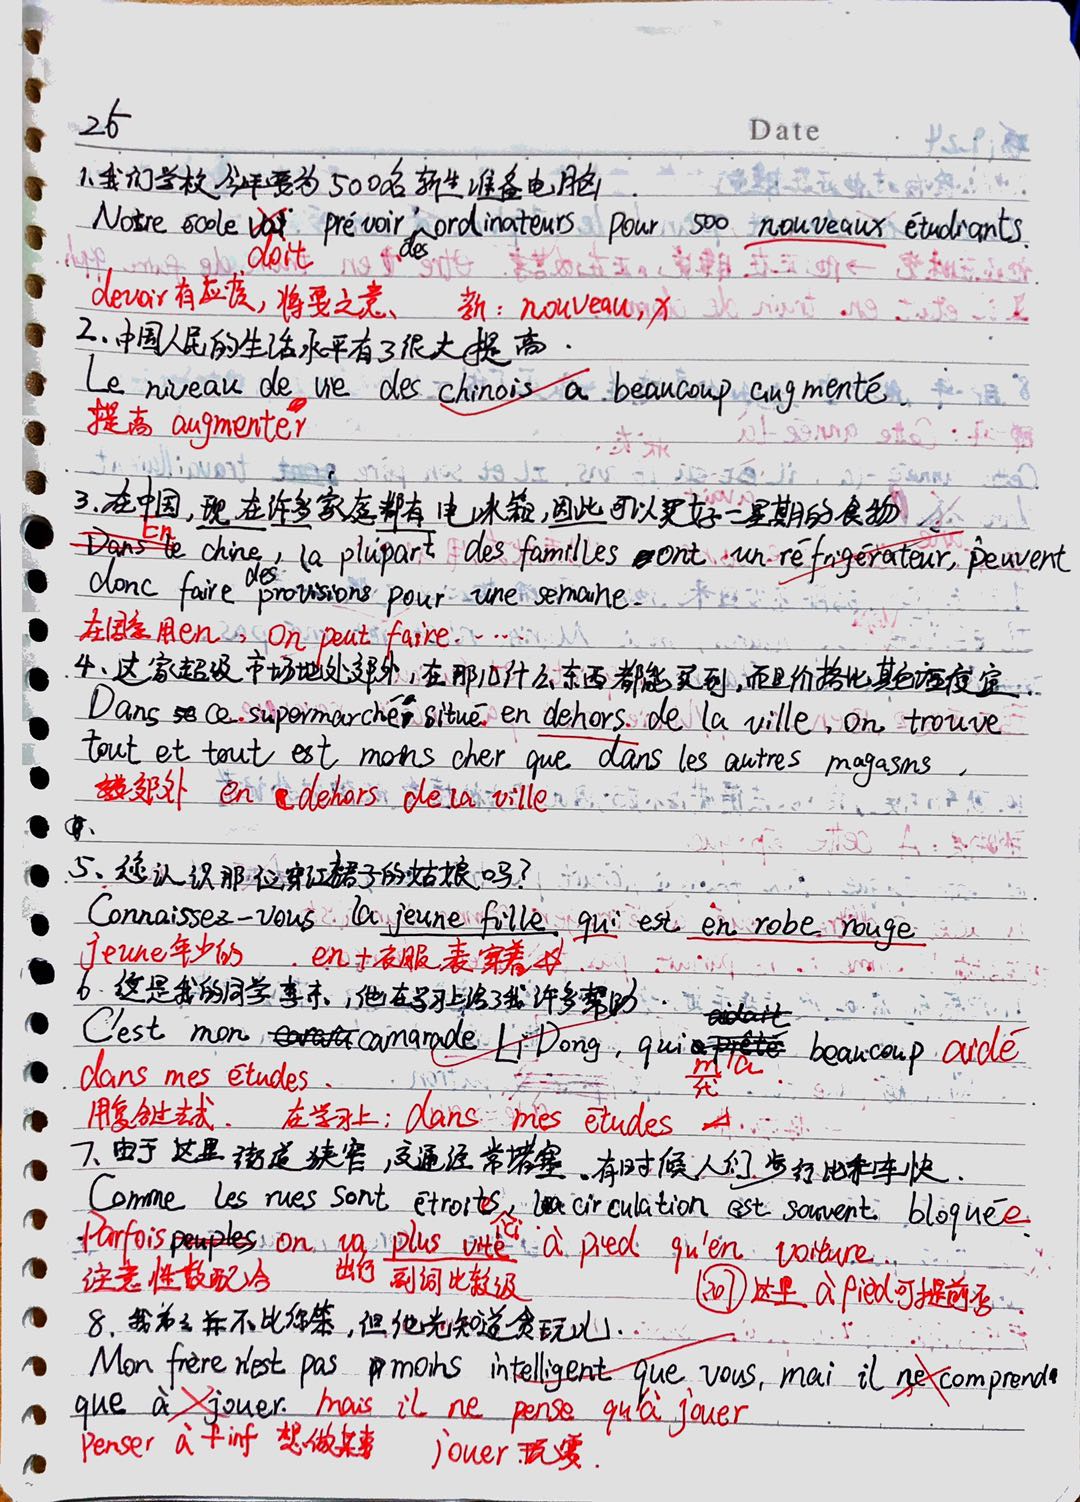 26
Date
1.我们学校今年要为500名新生准备电脑.
Notre école prévoir des ordinateurs pour 500 nouveaux étudiants.
doit
devoir有应该,将要之意、 新:nouveau,x
2、中国人民的生活水平有了很大提高.
Le niveau de vie des chinois a beaucoup augmenté.
提高 augmenter
3、在中国,现在许多家庭都有电冰箱,因此可以买好一星期的食物
En
Dans le chine, la plupart des familles ont un réfrigérateur, peuvent
donc faire des provisions pour une semaine.
在国家用en, On peut faire.……
4、这家超级市场地处郊外,在那儿什么东西都能买到,而且价格比其它店便宜.
Dans ce supermarché situé en dehors de la ville, on trouve
tout et tout est moins cher que dans les autres magasins,
郊外 en dehors de la ville
5、您认识那位穿红裙子的姑娘吗?
Connaissez-vous la jeune fille qui est en robe rouge
jeune年少的 en+衣服表穿着
6、这是我的同学李东,他在学习上给了我许多帮助.
C'est mon camarade Li Dong, qui m'a beaucoup aidé
dans mes études.
用复合过去式. 在学习上:dans mes études
7、由于这里街道狭窄,交通经常堵塞.有时候人们步行比乘车快.
Comme les rues sont étroites, la circulation est souvent bloquée
Parfois peuples on va plus vite à pied qu'en voiture.
注意性数配合 出行 副词比较级 这里à pied可提前否
8、我弟弟并不比你笨,但他光知道贪玩儿.
Mon frère n'est pas moins intelligent que vous, mai il ne comprend
que à jouer. mais il ne pense qu'à jouer
Penser à + inf 想做某事 jouer 玩耍.